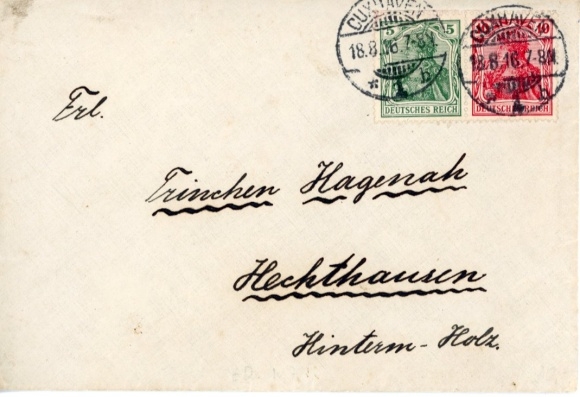 CUXHAVEN CUXHAVEN
5 5 10
18.8.16.7-8N. 18.8.16.7-8N.
* 1 b * * 1 b
DEUTSCHES REICH DEUTSCHES REICH
Frl.
Trinchen Hagenah
Hechthausen
Hinterm-Holz.